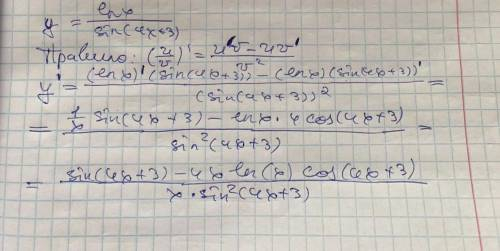 y = lnx / sin(4x+3)
Правило: (u/v)' = (u'v - uv') / v²
y' = ((lnx)'(sin(4x+3)) - (lnx)(sin(4x+3))') / (sin(4x+3))² =
= (1/x sin(4x+3) - lnx · 4cos(4x+3)) / sin²(4x+3) =
= (sin(4x+3) - 4x ln(x) cos(4x+3)) / (x · sin²(4x+3))